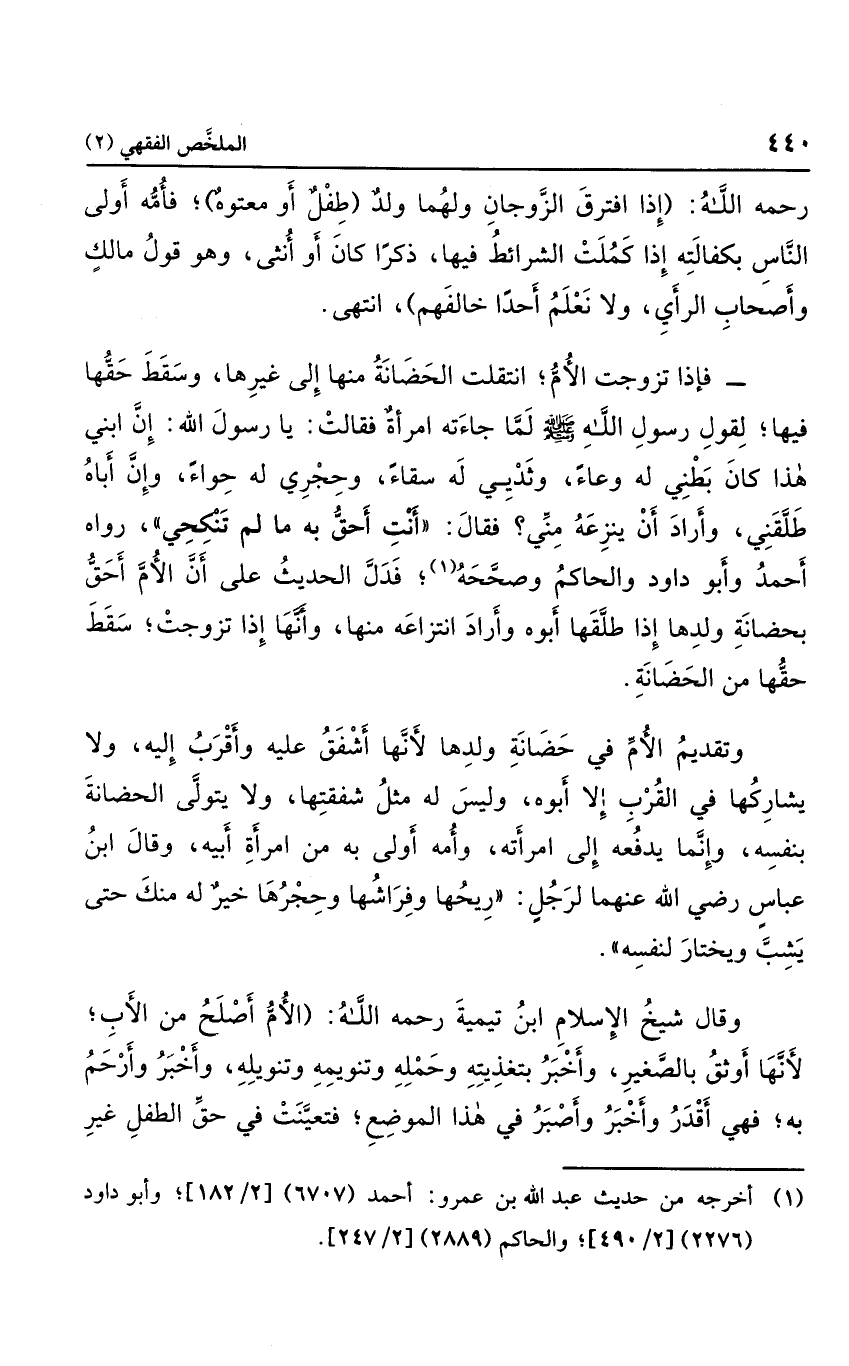 ٤٤٠ الملخَّص الفقهي (٢)
رحمه اللَّهُ: (إِذا افترقَ الزَّوجانِ ولهُما ولدٌ (طِفْلٌ أَو معتوهٌ)؛ فأُمُّه أَولى
النَّاسِ بكفالَتِه إِذا كَمُلَتْ الشرائطُ فيها، ذكرًا كانَ أَو أُنثى، وهو قولُ مالكٍ
وأَصحابِ الرأيِ، ولا نَعْلَمُ أَحدًا خالفَهم)، انتهى.
ــ فإذا تزوجت الأُمُّ؛ انتقلت الحَضَانَةُ منها إِلى غيرِها، وسَقَطَ حَقُّها
فيها؛ لِقولِ رسولِ اللَّهِ ﷺ لَمَّا جاءَته امرأةٌ فقالتْ: يا رسولَ الله: إِنَّ ابني
هٰذا كانَ بَطْنِي له وعاءً، وثَدْيِـي لَه سقاءً، وحِجْرِي له حِواءً، وإِنَّ أَباهُ
طَلَّقَنِي، وأَرادَ أَنْ ينزِعَهُ مِنِّي؟ فقالَ: «أَنْتِ أَحقُّ به ما لم تَنْكِحِي»، رواه
أَحمدُ وأَبو داود والحاكمُ وصحَّحَهُ(١)؛ فَدَلَّ الحديثُ على أَنَّ الأُمَّ أَحَقُّ
بحضانَةِ ولدِها إِذا طلَّقَها أَبوه وأَرادَ انتزاعَه منها، وأَنَّهَا إِذا تزوجتْ؛ سَقَطَ
حقُّها من الحَضَانَةِ.
وتقديمُ الأُمِّ في حَضَانَةِ ولدِها لأَنَّها أَشْفَقُ عليه وأَقْرَبُ إِليه، ولا
يشاركُها في القُرْبِ إِلا أَبوه، وليسَ له مثلُ شفقتِها، ولا يتولَّى الحضانةَ
بنفسِه، وإِنَّما يدفُعه إِلى امرأَته، وأُمه أَولى به من امرأَةِ أَبيه، وقالَ ابنُ
عباسٍ رضي الله عنهما لرَجُلٍ: «رِيحُها وفِرَاشُها وحِجْرُهَا خيرٌ له منكَ حتى
يَشِبَّ ويختارَ لنفسِه».
وقال شيخُ الإِسلامِ ابنُ تيميةَ رحمه اللَّهُ: (الأُمُّ أَصْلَحُ من الأَبِ؛
لأَنَّهَا أَوثقُ بالصَّغيرِ، وأَخْبَرُ بتغذِيتِهِ وحَمْلِهِ وتنويمِهِ وتنويلِهِ، وأَخْبَرُ وأَرْحَمُ
به؛ فهي أَقْدَرُ وأَخْبَرُ وأَصْبَرُ في هٰذا الموضِعِ؛ فتعيَّنَتْ في حقِّ الطفلِ غيرِ
(١) أخرجه من حديث عبد الله بن عمرو: أحمد (٦٧٠٧) [٢/ ١٨٢]؛ وأبو داود
(٢٢٧٦) [٢/ ٤٩٠]؛ والحاكم (٢٨٨٩) [٢/ ٢٤٧].